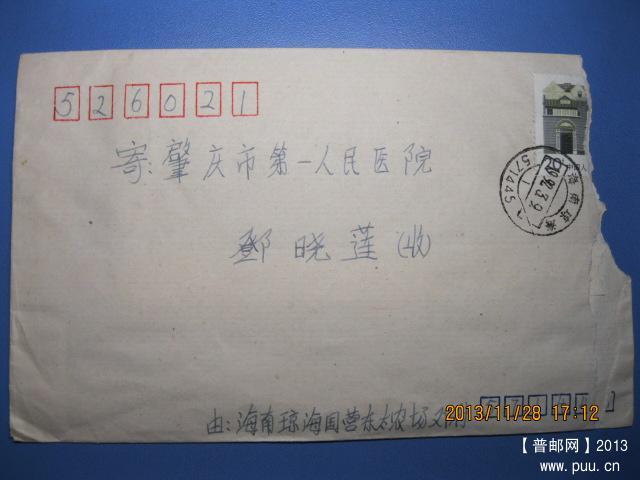 526021
寄：肇庆市第一人民医院
邓晓莲(收)
571445
海南 琼海
由：海南琼海国营东太农场
2013/11/28 17:12
【普邮网】2013
www.puu.cn